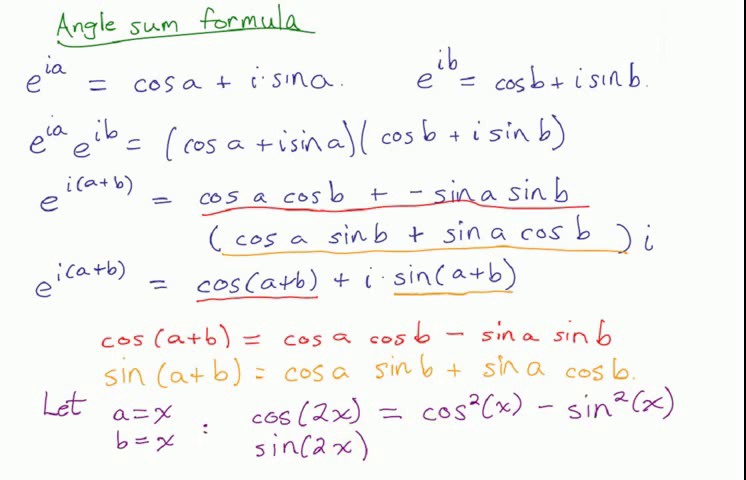 Angle sum formula
e^{ia} = cos a + i·sin a. e^{ib} = cos b + i sin b.
e^{ia} e^{ib} = (cos a + i sin a)(cos b + i sin b)
e^{i(a+b)} = cos a cos b + - sin a sin b
(cos a sin b + sin a cos b) i
e^{i(a+b)} = cos(a+b) + i·sin(a+b)
cos(a+b) = cos a cos b - sin a sin b
sin(a+b) = cos a sin b + sin a cos b.
Let a=x : cos(2x) = cos²(x) - sin²(x)
b=x sin(2x)